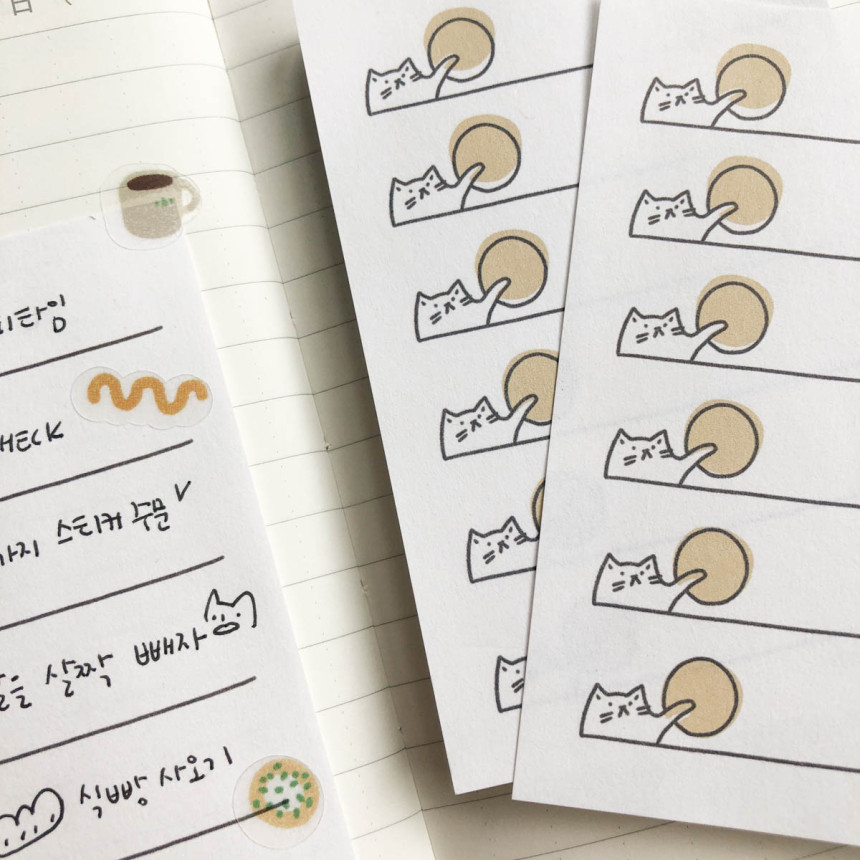 타임
HECK
스티커 주문 ✓
살짝 빼자
식빵 사오기